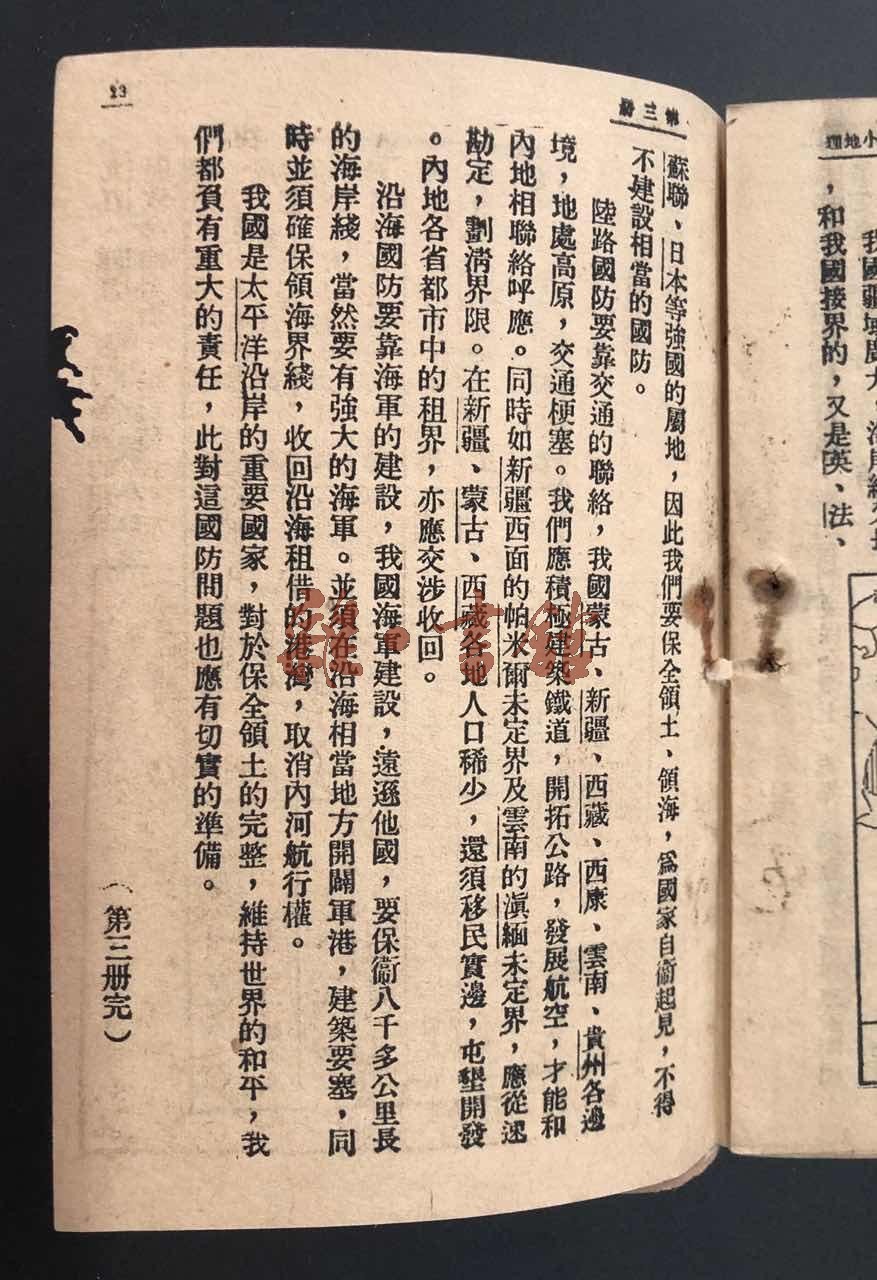 小地理
我國疆域廣大，海岸綫
，和我國接界的，又是英、法、
第三册
蘇聯、日本等強國的屬地，因此我們要保全領土、領海，爲國家自衞起見，不得
不建設相當的國防。
陸路國防要靠交通的聯絡，我國蒙古、新疆、西藏、西康、雲南、貴州各邊
境，地處高原，交通梗塞。我們應積極建築鐵道，開拓公路，發展航空，才能和
內地相聯絡呼應。同時如新疆西面的帕米爾未定界及雲南的滇緬未定界，應從速
勘定，劃清界限。在新疆、蒙古、西藏各地人口稀少，還須移民實邊，屯墾開發
。內地各省都市中的租界，亦應交涉收回。
沿海國防要靠海軍的建設，我國海軍建設，遠遜他國，要保衞八千多公里長
的海岸綫，當然要有強大的海軍。並須在沿海相當地方開闢軍港，建築要塞，同
時並須確保領海界綫，收回沿海租借的港灣，取消內河航行權。
我國是太平洋沿岸的重要國家，對於保全領土的完整，維持世界的和平，我
們都負有重大的責任，此對這國防問題也應有切實的準備。
（第三册完）
23